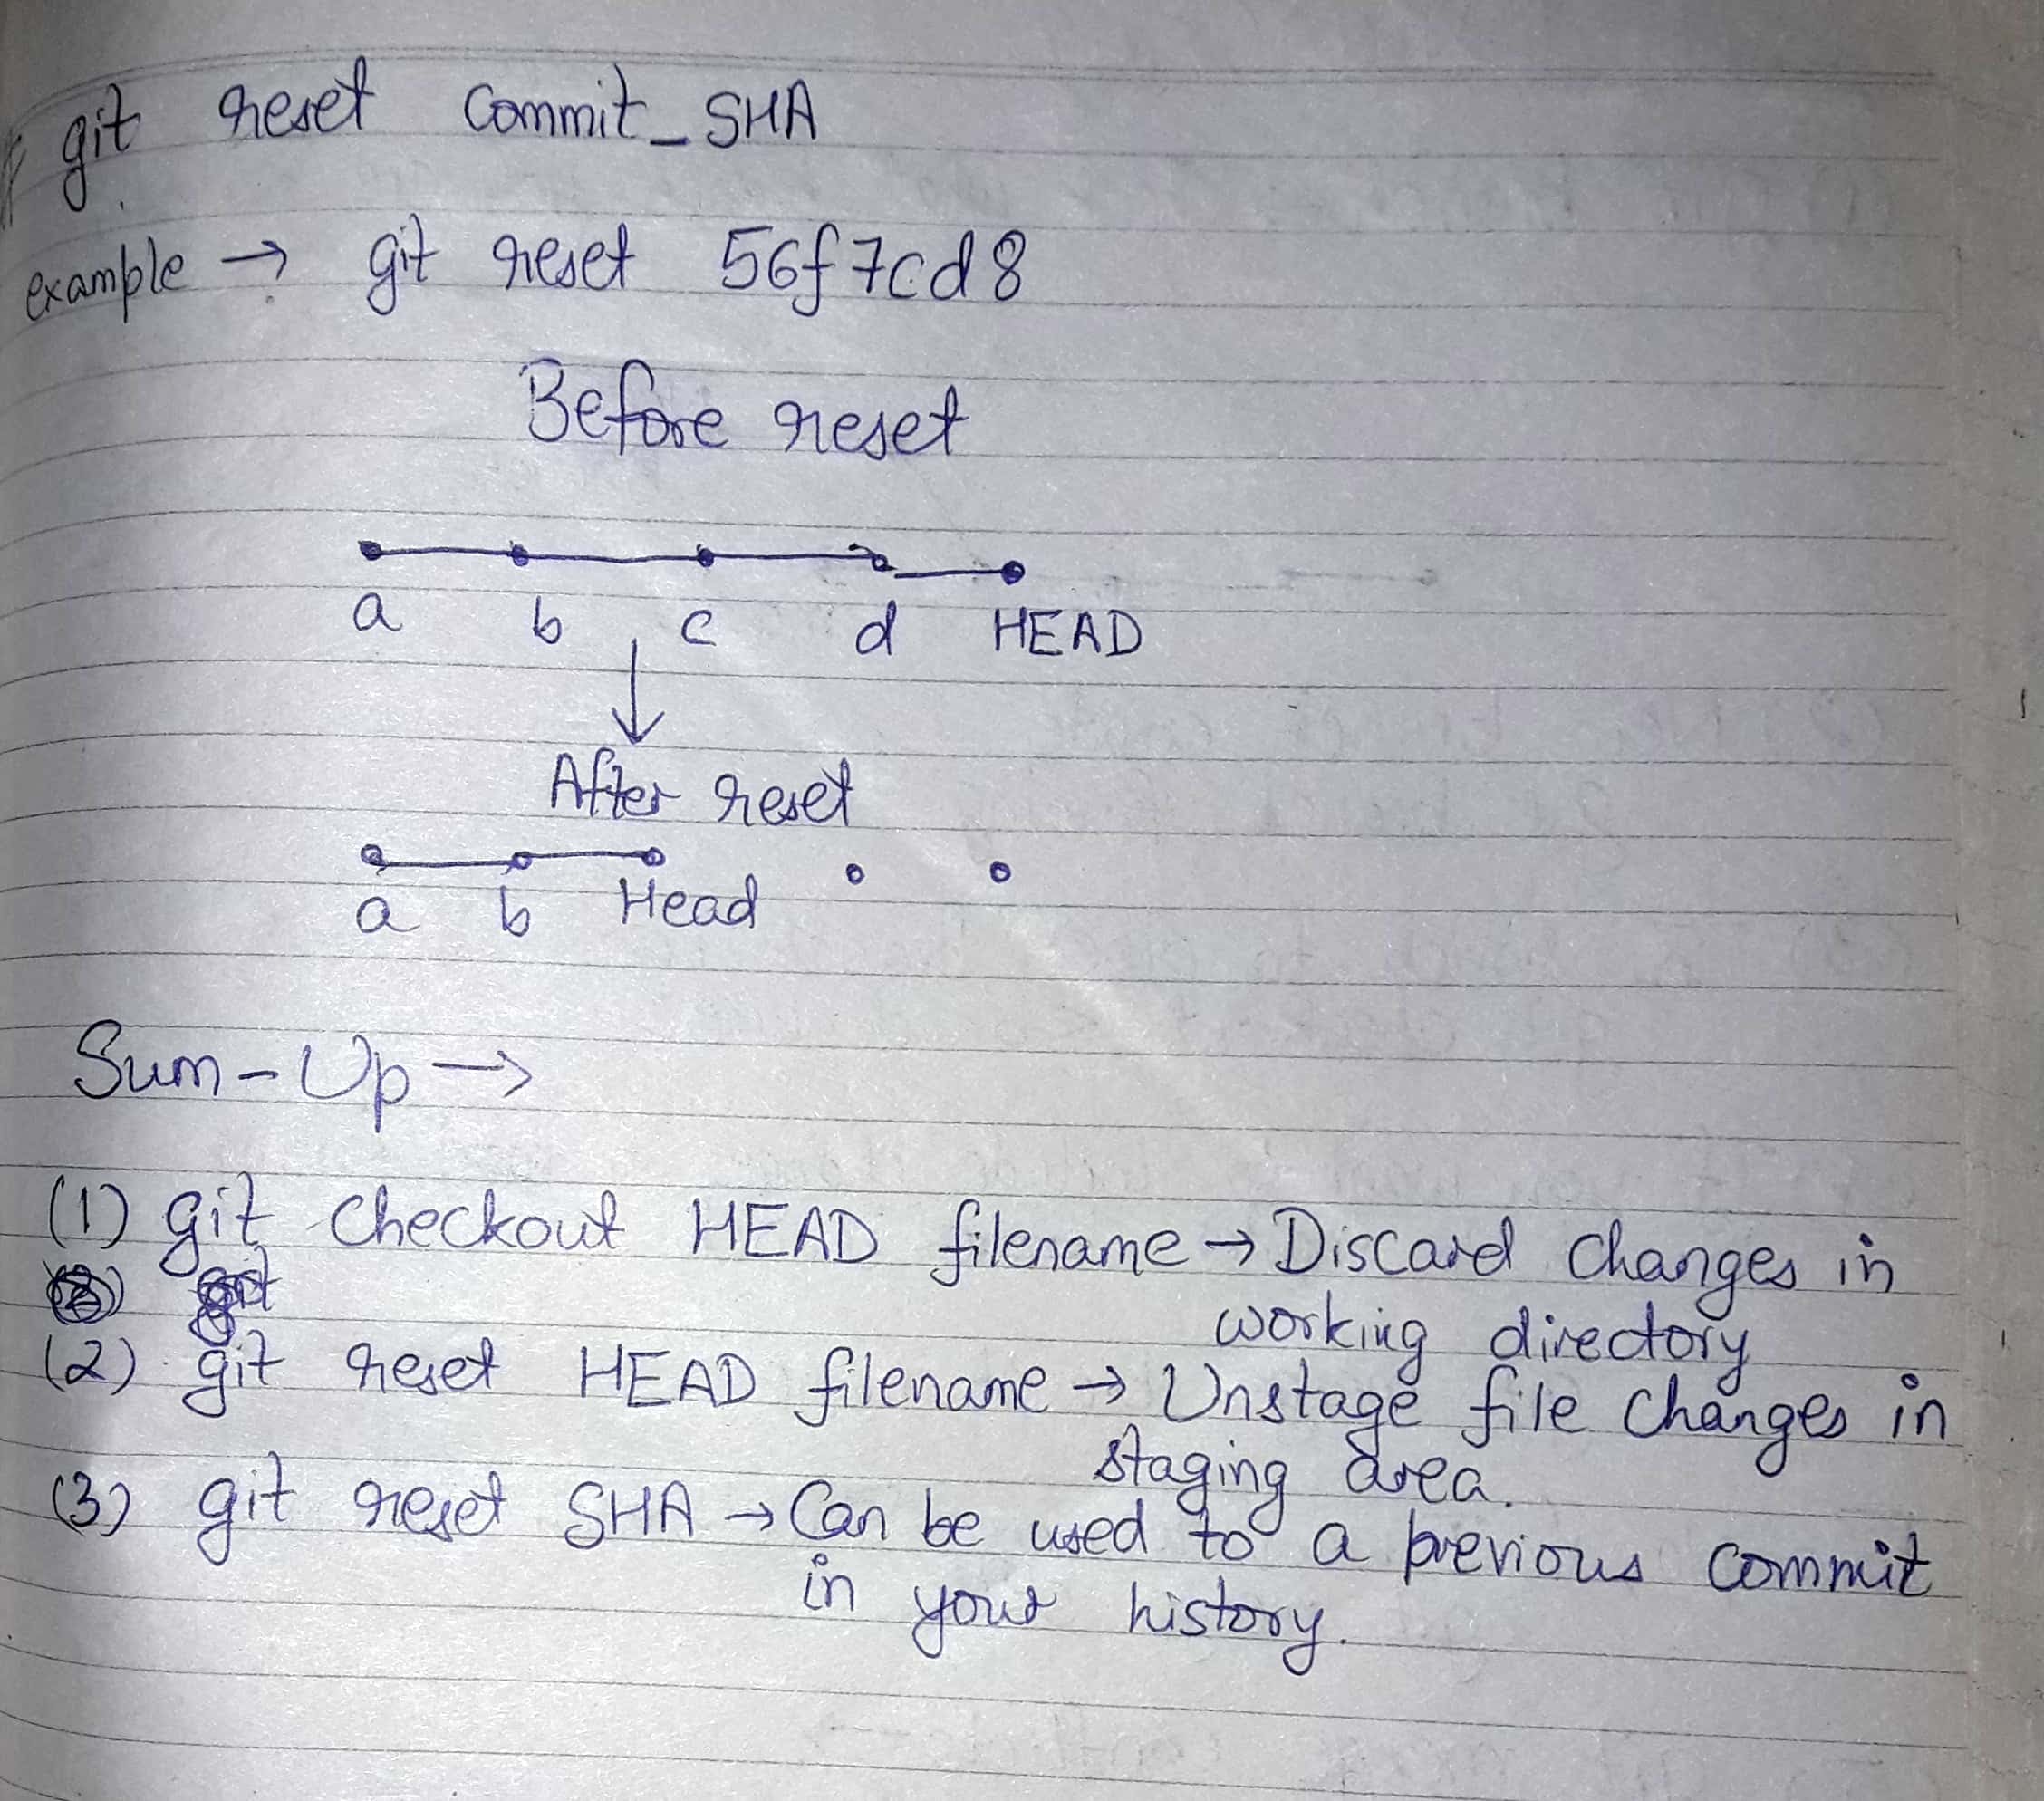 git reset commit_SHA
example → git reset 56f7cd8
Before reset
a b c d HEAD
After reset
a b Head
Sum-Up →
(1) git checkout HEAD filename → Discard changes in
working directory
(2) git reset HEAD filename → Unstage file changes in
staging area.
(3) git reset SHA → Can be used to a previous commit
in your history.